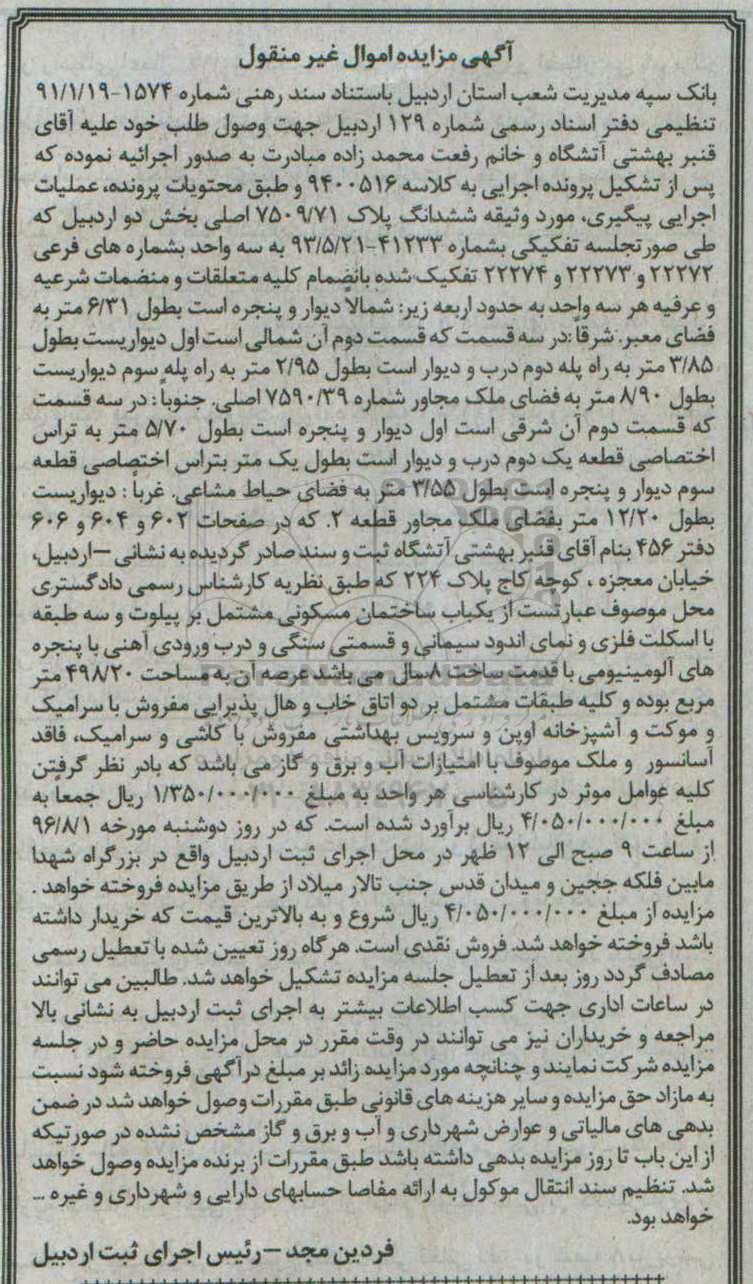 آگهی مزایده اموال غیر منقول
بانک سپه مدیریت شعب استان اردبیل باستناد سند رهنی شماره ۱۵۷۴-۹۱/۱/۱۹
تنظیمی دفتر اسناد رسمی شماره ۱۲۹ اردبیل جهت وصول طلب خود علیه آقای
قنبر بهشتی آتشگاه و خانم رفعت محمد زاده مبادرت به صدور اجرائیه نموده که
پس از تشکیل پرونده اجرایی به کلاسه ۹۴۰۰۵۱۶ و طبق محتویات پرونده، عملیات
اجرایی پیگیری، مورد وثیقه ششدانگ پلاک ۷۵۰۹/۷۱ اصلی بخش دو اردبیل که
طی صورتجلسه تفکیکی بشماره ۴۱۲۳۳-۹۳/۵/۲۱ به سه واحد بشماره های فرعی
۲۲۲۷۲ و ۲۲۲۷۳ و ۲۲۲۷۴ تفکیک شده بانضمام کلیه متعلقات و منضمات شرعیه
و عرفیه هر سه واحد به حدود اربعه زیر: شمالاً دیوار و پنجره است بطول ۶/۳۱ متر به
فضای معبر. شرقاً :در سه قسمت که قسمت دوم آن شمالی است اول دیواریست بطول
۳/۸۵ متر به راه پله دوم درب و دیوار است بطول ۲/۹۵ متر به راه پله سوم دیواریست
بطول ۸/۹۰ متر به فضای ملک مجاور شماره ۷۵۹۰/۳۹ اصلی. جنوباً : در سه قسمت
که قسمت دوم آن شرقی است اول دیوار و پنجره است بطول ۵/۷۰ متر به تراس
اختصاصی قطعه یک دوم درب و دیوار است بطول یک متر بتراس اختصاصی قطعه
سوم دیوار و پنجره است بطول ۳/۵۵ متر به فضای حیاط مشاعی. غرباً : دیواریست
بطول ۱۲/۲۰ متر بفضای ملک مجاور قطعه ۲. که در صفحات ۶۰۲ و ۶۰۴ و ۶۰۶
دفتر ۴۵۶ بنام آقای قنبر بهشتی آتشگاه ثبت و سند صادر گردیده به نشانی –اردبیل،
خیابان معجزه ، کوچه کاج پلاک ۲۲۴ که طبق نظریه کارشناس رسمی دادگستری
محل موصوف عبارتست از یکباب ساختمان مسکونی مشتمل بر پیلوت و سه طبقه
با اسکلت فلزی و نمای اندود سیمانی و قسمتی سنگی و درب ورودی آهنی با پنجره
های آلومینیومی با قدمت ساخت ۸سال می باشد عرصه آن به مساحت ۴۹۸/۲۰ متر
مربع بوده و کلیه طبقات مشتمل بر دو اتاق خاب و هال پذیرایی مفروش با سرامیک
و موکت و آشپزخانه اوپن و سرویس بهداشتی مفروش با کاشی و سرامیک، فاقد
آسانسور و ملک موصوف با امتیازات آب و برق و گاز می باشد که بادر نظر گرفتن
کلیه عوامل موثر در کارشناسی هر واحد به مبلغ ۱/۳۵۰/۰۰۰/۰۰۰ ریال جمعاً به
مبلغ ۴/۰۵۰/۰۰۰/۰۰۰ ریال برآورد شده است. که در روز دوشنبه مورخه ۹۶/۸/۱
از ساعت ۹ صبح الی ۱۲ ظهر در محل اجرای ثبت اردبیل واقع در بزرگراه شهدا
مابین فلکه ججین و میدان قدس جنب تالار میلاد از طریق مزایده فروخته خواهد .
مزایده از مبلغ ۴/۰۵۰/۰۰۰/۰۰۰ ریال شروع و به بالاترین قیمت که خریدار داشته
باشد فروخته خواهد شد. فروش نقدی است. هرگاه روز تعیین شده با تعطیل رسمی
مصادف گردد روز بعد از تعطیل جلسه مزایده تشکیل خواهد شد. طالبین می توانند
در ساعات اداری جهت کسب اطلاعات بیشتر به اجرای ثبت اردبیل به نشانی بالا
مراجعه و خریداران نیز می توانند در وقت مقرر در محل مزایده حاضر و در جلسه
مزایده شرکت نمایند و چنانچه مورد مزایده زائد بر مبلغ درآگهی فروخته شود نسبت
به مازاد حق مزایده و سایر هزینه های قانونی طبق مقررات وصول خواهد شد در ضمن
بدهی های مالیاتی و عوارض شهرداری و آب و برق و گاز مشخص نشده در صورتیکه
از این باب تا روز مزایده بدهی داشته باشد طبق مقررات از برنده مزایده وصول خواهد
شد. تنظیم سند انتقال موکول به ارائه مفاصا حسابهای دارایی و شهرداری و غیره ...
خواهد بود.
فردین مجد –رئیس اجرای ثبت اردبیل